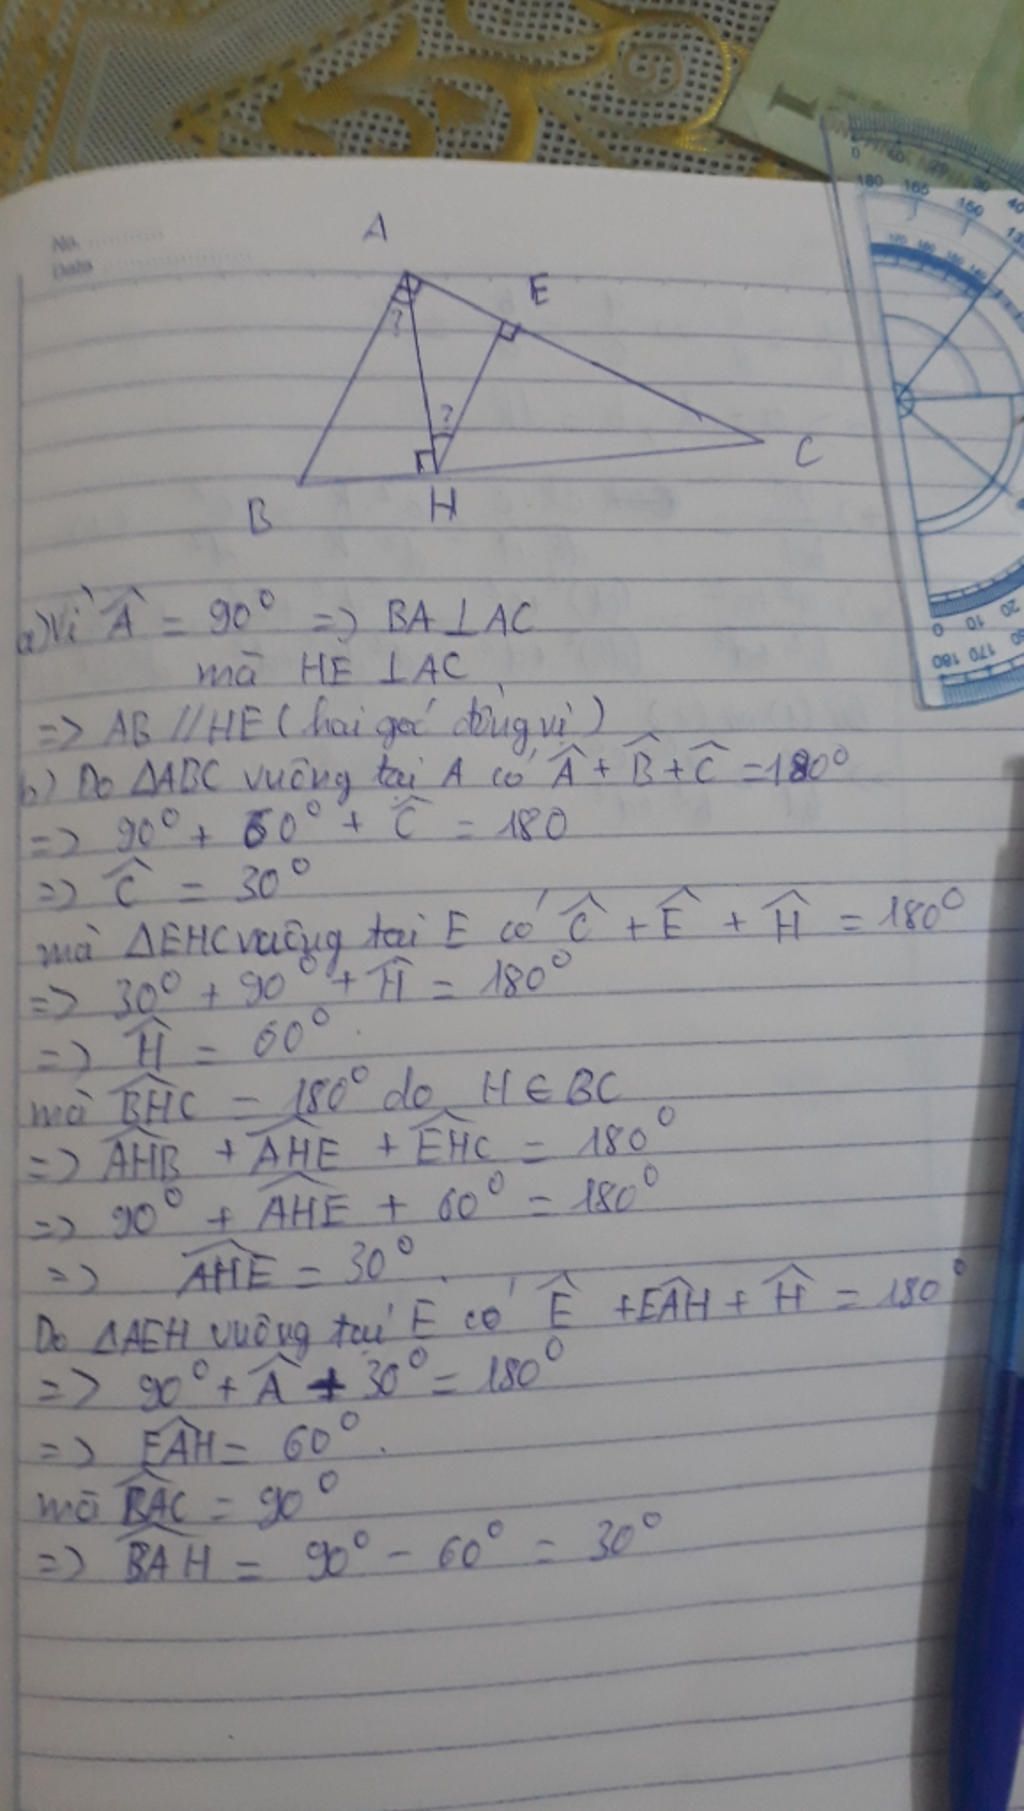 No.
Date
A
E
?
?
C
B
H
a) Vì Â = 90° => BA ⊥ AC
mà HE ⊥ AC
=> AB // HE (hai góc đồng vị)
b) Do ΔABC vuông tại A có Â + B̂ + Ĉ = 180°
=> 90° + 60° + Ĉ = 180
=> Ĉ = 30°
mà ΔEHC vuông tại E có Ĉ + Ê + Ĥ = 180°
=> 30° + 90° + Ĥ = 180°
=> Ĥ = 60°.
mà BHC̑ = 180° do H ∈ BC
=> AHB̑ + AHȆ + EHC̑ = 180°
=> 90° + AHȆ + 60° = 180°
=> AHȆ = 30°.
Do ΔAEH vuông tại E có Ê + EÂH + Ĥ = 180°
=> 90° + Â + 30° = 180°
=> EÂH = 60°.
mà BÂC = 90°
=> BÂH = 90° - 60° = 30°
0
180
165
150
0
10
20
180
170